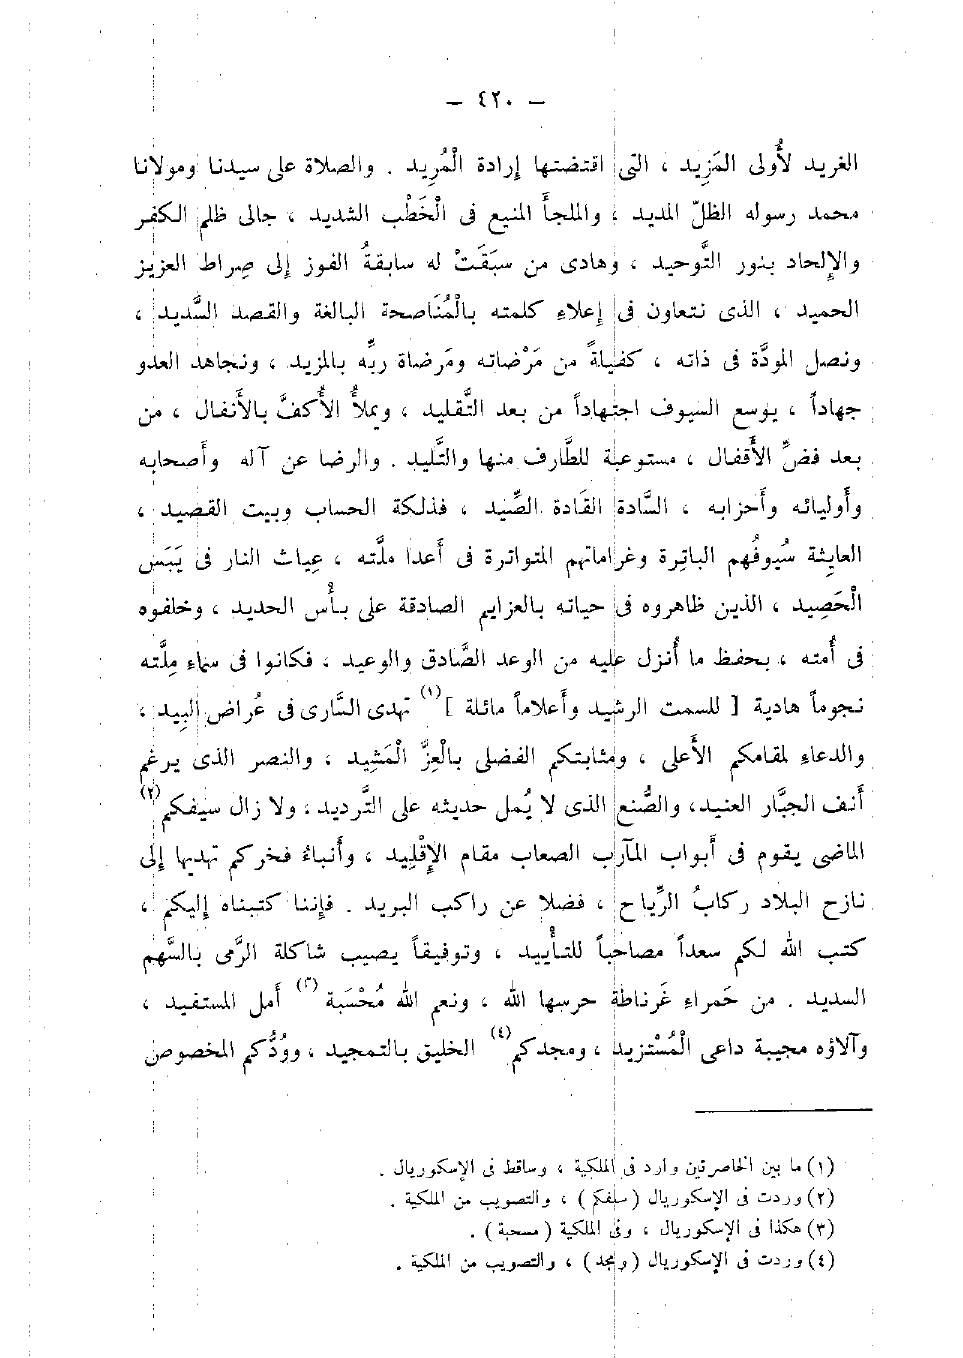 — ٤٢٠ —
الغريد لأُولى المَزِيد ، التى اقتضتها إرادة الْمُرِيد . والصلاة على سيدنا ومولانا
محمد رسوله الظلّ المديد ، والملجأ المنيع فى الْخَطْب الشديد ، جالى ظلم الكفر
والإلحاد بنور التَّوحيد ، وهادى من سبَقَتْ له سابقةُ الفوز إلى صِراط العزيز
الحميد ، الذى نتعاون فى إعلاءِ كلمته بالْمُنَاصحة البالغة والقصد السَّديد ،
ونصل المودَّة فى ذاته ، كفيلةً من مَرْضاته ومَرضاة ربِّه بالمزيد ، ونجاهد العدو
جهاداً ، يوسع السيوف اجتهاداً من بعد التَّقليد ، ويملأُ الأَكفَّ بالأَنفال ، من
بعد فضِّ الأَقفال ، مستوعبة للطَّارف منها والتَّليد . والرضا عن آله وأَصحابه
وأَوليائه وأَحزابه ، السَّادة القَادة الصِّيد ، فذلكة الحساب وبيت القصيد ،
العايِثة سُيوفُهم الباتِرة وغراماتهم المتواترة فى أَعدا ملَّته ، عِياث النار فى يَبَس
الْحَصِيد ، الذين ظاهروه فى حياته بالعزايم الصادقة على بأْس الحديد ، وخلفوه
فى أُمته ، بحفظ ما أُنزل عليه من الوعد الصَّادق والوعيد ، فكانوا فى سماءِ مِلَّته
نجوماً هادية [ للسمت الرشيد وأَعلاماً ماثلة ](١) تهدى السَّارى فى عُراض البِيد ،
والدعاءِ لمقامكم الأَعلى ، ومثابتكم الفضلى بالْعِزِّ الْمَشِيد ، والنصر الذى يرغم
أَنف الجبَّار العنيد، والصُّنع الذى لا يُمل حديثه على التَّرديد ، ولا زال سيفكم(٢)
الماضى يقوم فى أَبواب المآرب الصعاب مقام الإِقْلِيد ، وأَنباءُ فخركم تهديها إلى
نازح البلاد ركابُ الرِّياح ، فضلا عن راكب البريد . فإننا كتبناه إليكم ،
كتب الله لكم سعداً مصاحباً للتأْييد ، وتوفيقاً يصيب شاكلة الرَّمى بالسَّهم
السديد . من حَمراءِ غَرناطة حرسها الله ، ونعم الله مُحْسَبة (٣) أَمل المستفيد ،
وآلاؤه مجيبة داعى الْمُسْتزيد ، ومجدكم(٤) الخليق بالتمجيد ، ووُدُّكم المخصوص
(١) ما بين الخاصرتين وارد فى الملكية ، وساقط فى الإسكوريال .
(٢) وردت فى الإسكوريال (سلفكم) ، والتصويب من الملكية .
(٣) هكذا فى الإسكوريال ، وفى الملكية (مسحبة) .
(٤) وردت فى الإسكوريال (ومجد) ، والتصويب من الملكية .